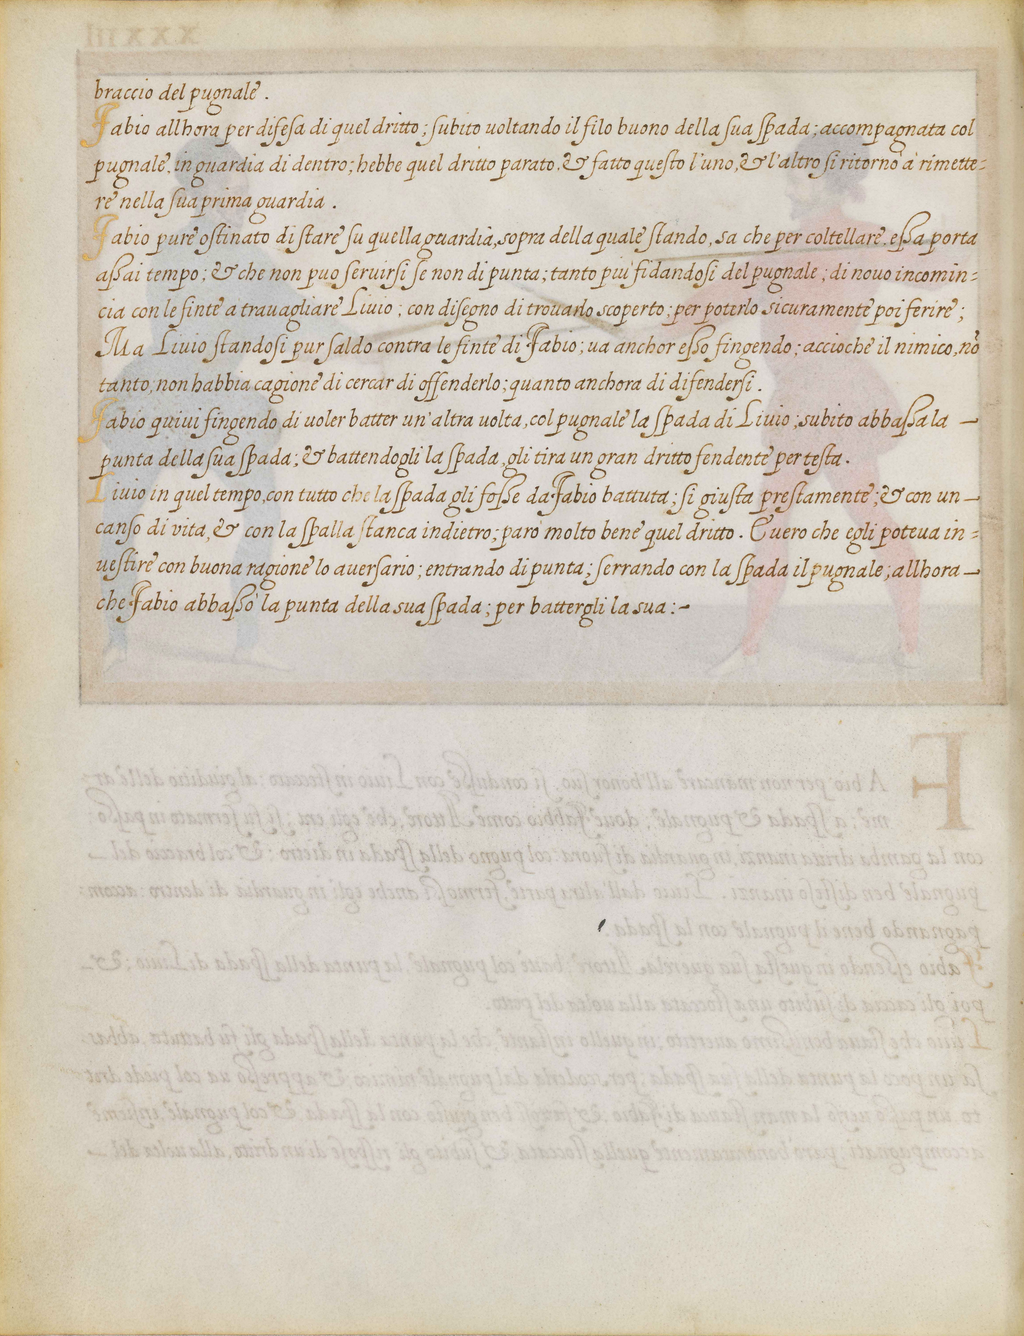 braccio del pugnale .
Fabio allhora per difesa di quel dritto ; subito uoltando il filo buono della sua spada ; accompagnata col
pugnale, in guardia di dentro ; hebbe quel dritto parato, & fatto questo l'uno, & l'altro si ritornò à rimette=
re nella sua prima guardia .
Fabio pure ostinato di stare su quella guardia, sopra della quale stando, sa che per coltellare, essa porta
assai tempo ; & che non puo seruirsi se non di punta ; tanto piu fidandosi del pugnale ; di nouo incomin=
cia con le finte a trauagliare Liuio ; con disegno di trouarlo scoperto ; per poterlo sicuramente poi ferire ;
Ma Liuio standosi pur saldo contra le finte di Fabio ; ua anchor esso fingendo ; accioche il nimico, nõ
tanto, non habbia cagione di cercar di offenderlo ; quanto anchora di difendersi .
Fabio quiui fingendo di uoler batter un'altra uolta, col pugnale la spada di Liuio ; subito abbassa la —
punta della sua spada ; & battendogli la spada, gli tira un gran dritto fendente per testa .
Liuio in quel tempo, con tutto che la spada gli fosse da Fabio battuta ; si giusta prestamente ; & con un —
canso di vita, & con la spalla stanca indietro ; parò molto bene quel dritto . E uero che egli poteua in=
uestire con buona ragione lo auersario ; entrando di punta ; serrando con la spada il pugnale ; allhora —
che Fabio abbassò la punta della sua spada ; per battergli la sua : ~